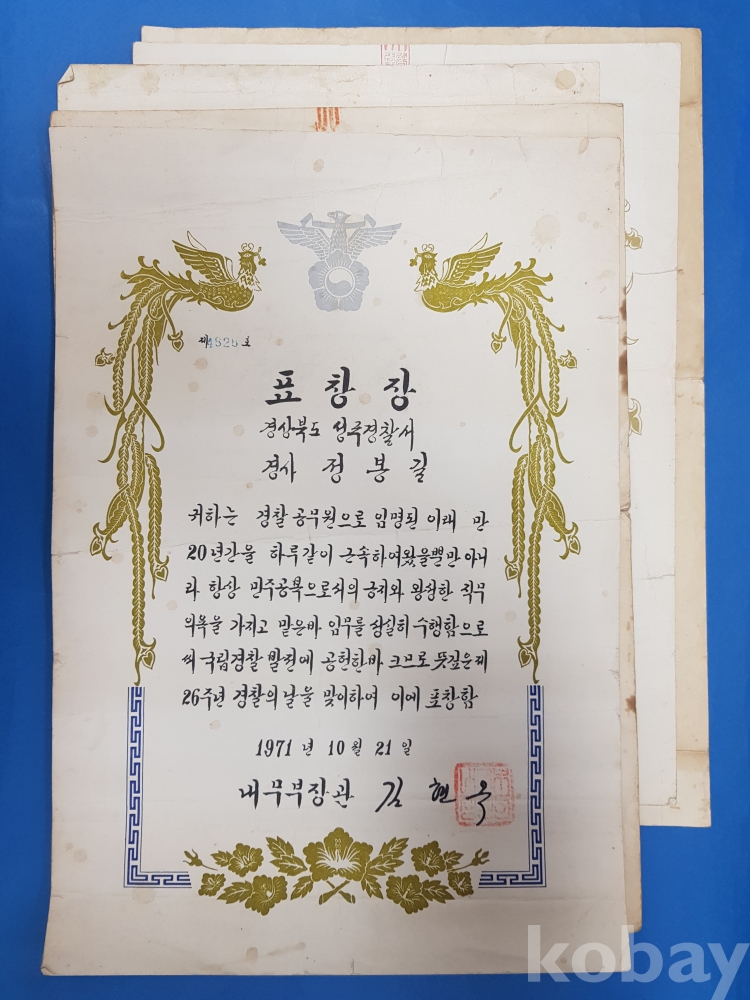 제4826호
표창장
경상북도 성주경찰서
경사 정봉길
귀하는 경찰공무원으로 임명된 이래 만
20년간을 하루같이 근속하여왔을뿐만아니
라 항상 민주공복으로서의 긍지와 왕성한 직무
의욕을 가지고 맡은바 임무를 성실히 수행함으로
써 국립경찰 발전에 공헌한바 크므로 뜻깊은 제
26주년 경찰의 날을 맞이하여 이에 표창함
1971년 10월 21일
내무부장관 김현옥
kobay